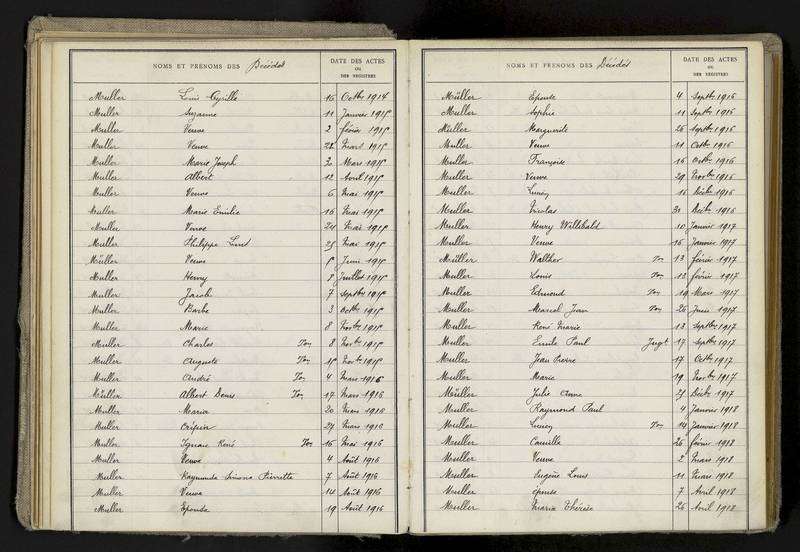 NOMS ET PRÉNOMS DES Décédés
DATE DES ACTES
OU
DES REGISTRES
Muller Louis Cyrille 16 Octbre 1914
Muller Suzanne 11 Janvier 1915
Muller Veuve 2 février 1915
Muller Veuve 22 Mars 1915
Muller Marie Joseph 30 Mars 1915
Muller Albert 12 Avril 1915
Muller Veuve 6 Mai 1915
Muller Marie Emilie 16 Mai 1915
Muller Veuve 24 Mai 1915
Muller Philippe Louis 25 Mai 1915
Muller Veuve 5 Juin 1915
Muller Henry 8 Juillet 1915
Muller Jacob 7 Septbre 1915
Muller Barbe 3 Octbre 1915
Muller Marie 8 Novbre 1915
Muller Charles 8 Novbre 1915
Muller Auguste 15 Novbre 1915
Muller André 4 Mars 1916
Müller Albert Denis 17 Mars 1916
Muller Maria 20 Mars 1916
Muller Crépin 27 Mars 1916
Muller Ignace René 16 Mai 1916
Muller Veuve 4 Août 1916
Muller Raymonde Simone Pierrette 7 Août 1916
Muller Veuve 14 Août 1916
Muller Epouse 19 Août 1916
NOMS ET PRÉNOMS DES Décédés
DATE DES ACTES
OU
DES REGISTRES
Müller Epouse 4 Septbre 1916
Muller Sophie 11 Septbre 1916
Müller Marguerite 26 Septbre 1916
Muller Veuve 11 Octbre 1916
Muller Françoise 16 Octbre 1916
Muller Veuve 29 Novbre 1916
Muller Lucien 16 Décbre 1916
Muller Nicolas 31 Décbre 1916
Muller Henry Willibald 10 Janvier 1917
Muller Veuve 16 Janvier 1917
Müller Walther 13 février 1917
Muller Louis 13 février 1917
Muller Edmond 19 Mars 1917
Muller Marcel Jean 26 Juin 1917
Muller René Marie 13 Septbre 1917
Muller Emile Paul Jugt 17 Septbre 1917
Muller Jean Pierre 17 Octbre 1917
Muller Marie 19 Novbre 1917
Müller Julie Anne 25 Décbre 1917
Muller Raymond Paul 4 Janvier 1918
Muller Lucien 14 Janvier 1918
Muller Camille 26 février 1918
Muller Veuve 2 Mars 1918
Muller Eugène Louis 11 Mars 1918
Muller épouse 7 Avril 1918
Muller Marie Thérèse 26 Avril 1918